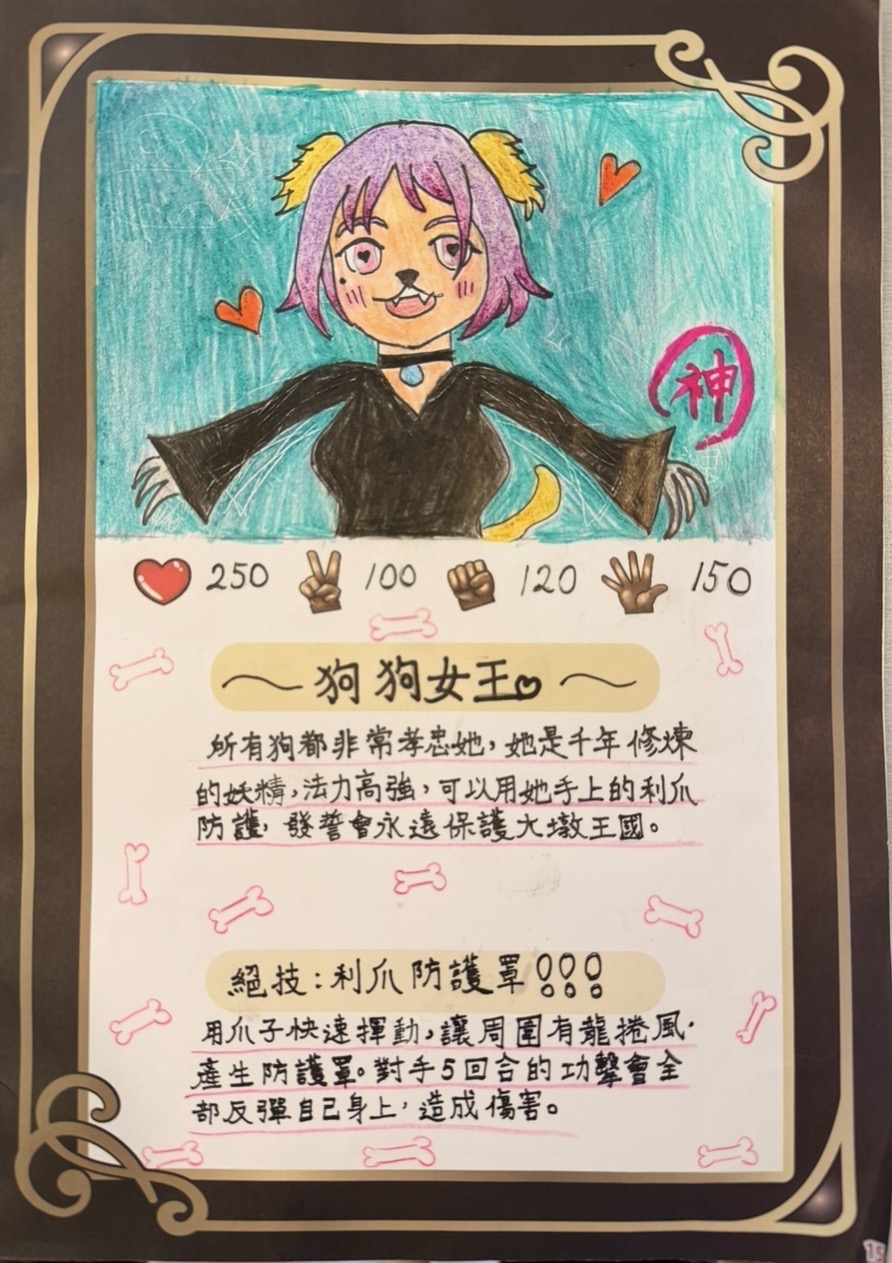 神
250 100 120 150
～狗狗女王～
所有狗都非常孝忠她，她是千年修煉
的妖精，法力高強，可以用她手上的利爪
防護，發誓會永遠保護大墩王國。
絕技：利爪防護罩!!!
用爪子快速揮動，讓周圍有龍捲風，
產生防護罩。對手5回合的功擊會全
部反彈自己身上，造成傷害。